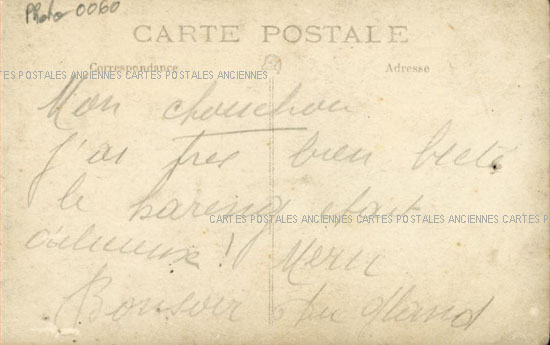 Photo 0060
CARTE POSTALE
Correspondance Adresse
CARTES POSTALES ANCIENNES CARTES POSTALES ANCIENNES
Mon chouchou
j'ai tres bien
le hareng etait
CARTES POSTALES ANCIENNES CARTES POSTALES ANCIENNES CARTES POS
! Merci
Bonsoir